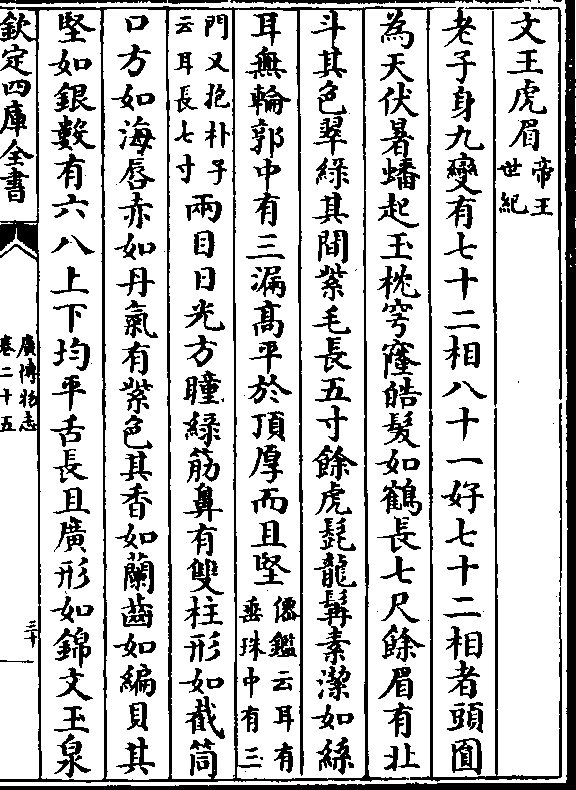 文王虎眉帝王世紀
老子身九變有七十二相八十一好七十二相者頭圓
為天伏晷蟠起玉枕穹窿皓髮如鶴長七尺餘眉有北
斗其色翠緑其間紫毛長五寸餘虎髭龍髯素潔如絲
耳無輪郭中有三漏高平於頂厚而且堅僊鑑云耳有垂珠中有三
門又抱朴子云耳長七寸兩目日光方瞳緑筋鼻有雙柱形如截筒
口方如海唇赤如丹氣有紫色其香如蘭齒如編貝其
堅如銀數有六八上下均平舌長且廣形如錦文玉泉
欽定四庫全書
廣博物志
卷二十五
三十